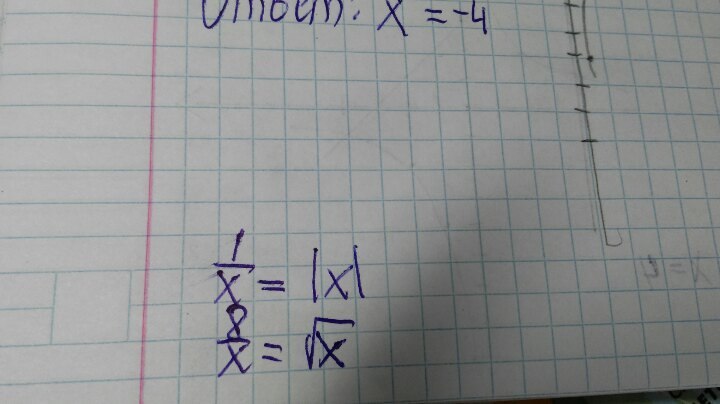 Ответ: x = -4
1/x = |x|
8/x = √x